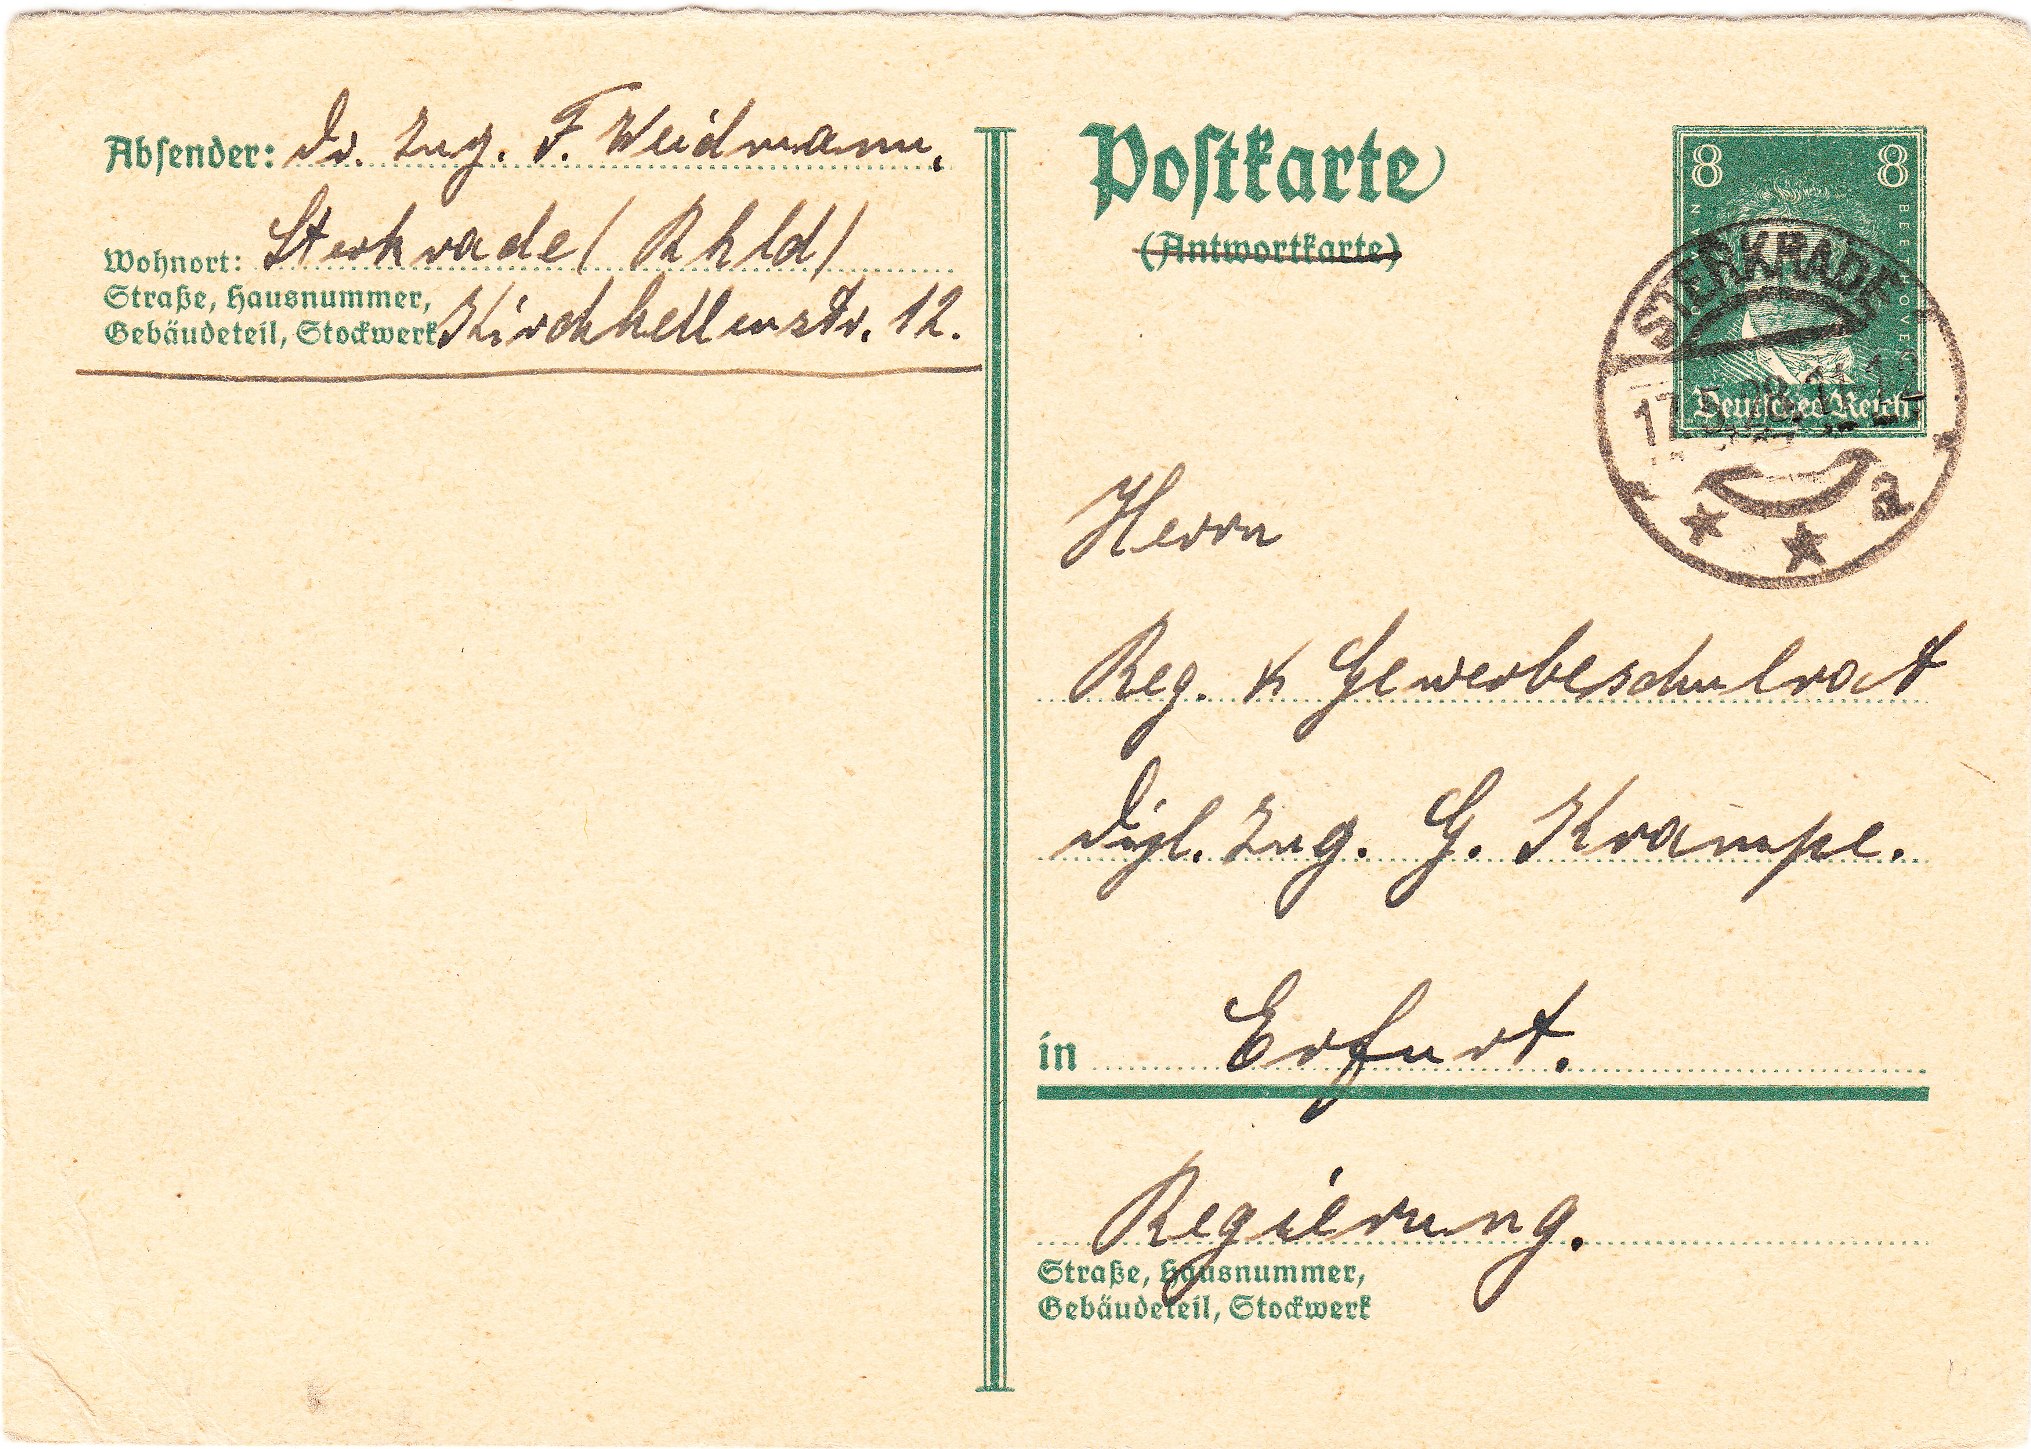 Absender: Dr. Ing. F. Weidmann,
Wohnort: Sterkrade / Rhld /
Straße, Hausnummer,
Gebäudeteil, Stockwerk Kirchhellenstr. 12.
Postkarte
(Antwortkarte)
8 8
BEETHOVEN
Deutsches Reich
STERKRADE
17.5.28. 11-12
* * a
Herrn
Reg. & Gewerbeschulrat
Dipl. Ing. G. Krampe.
in Erfurt.
Regierung.
Straße, Hausnummer,
Gebäudeteil, Stockwerk